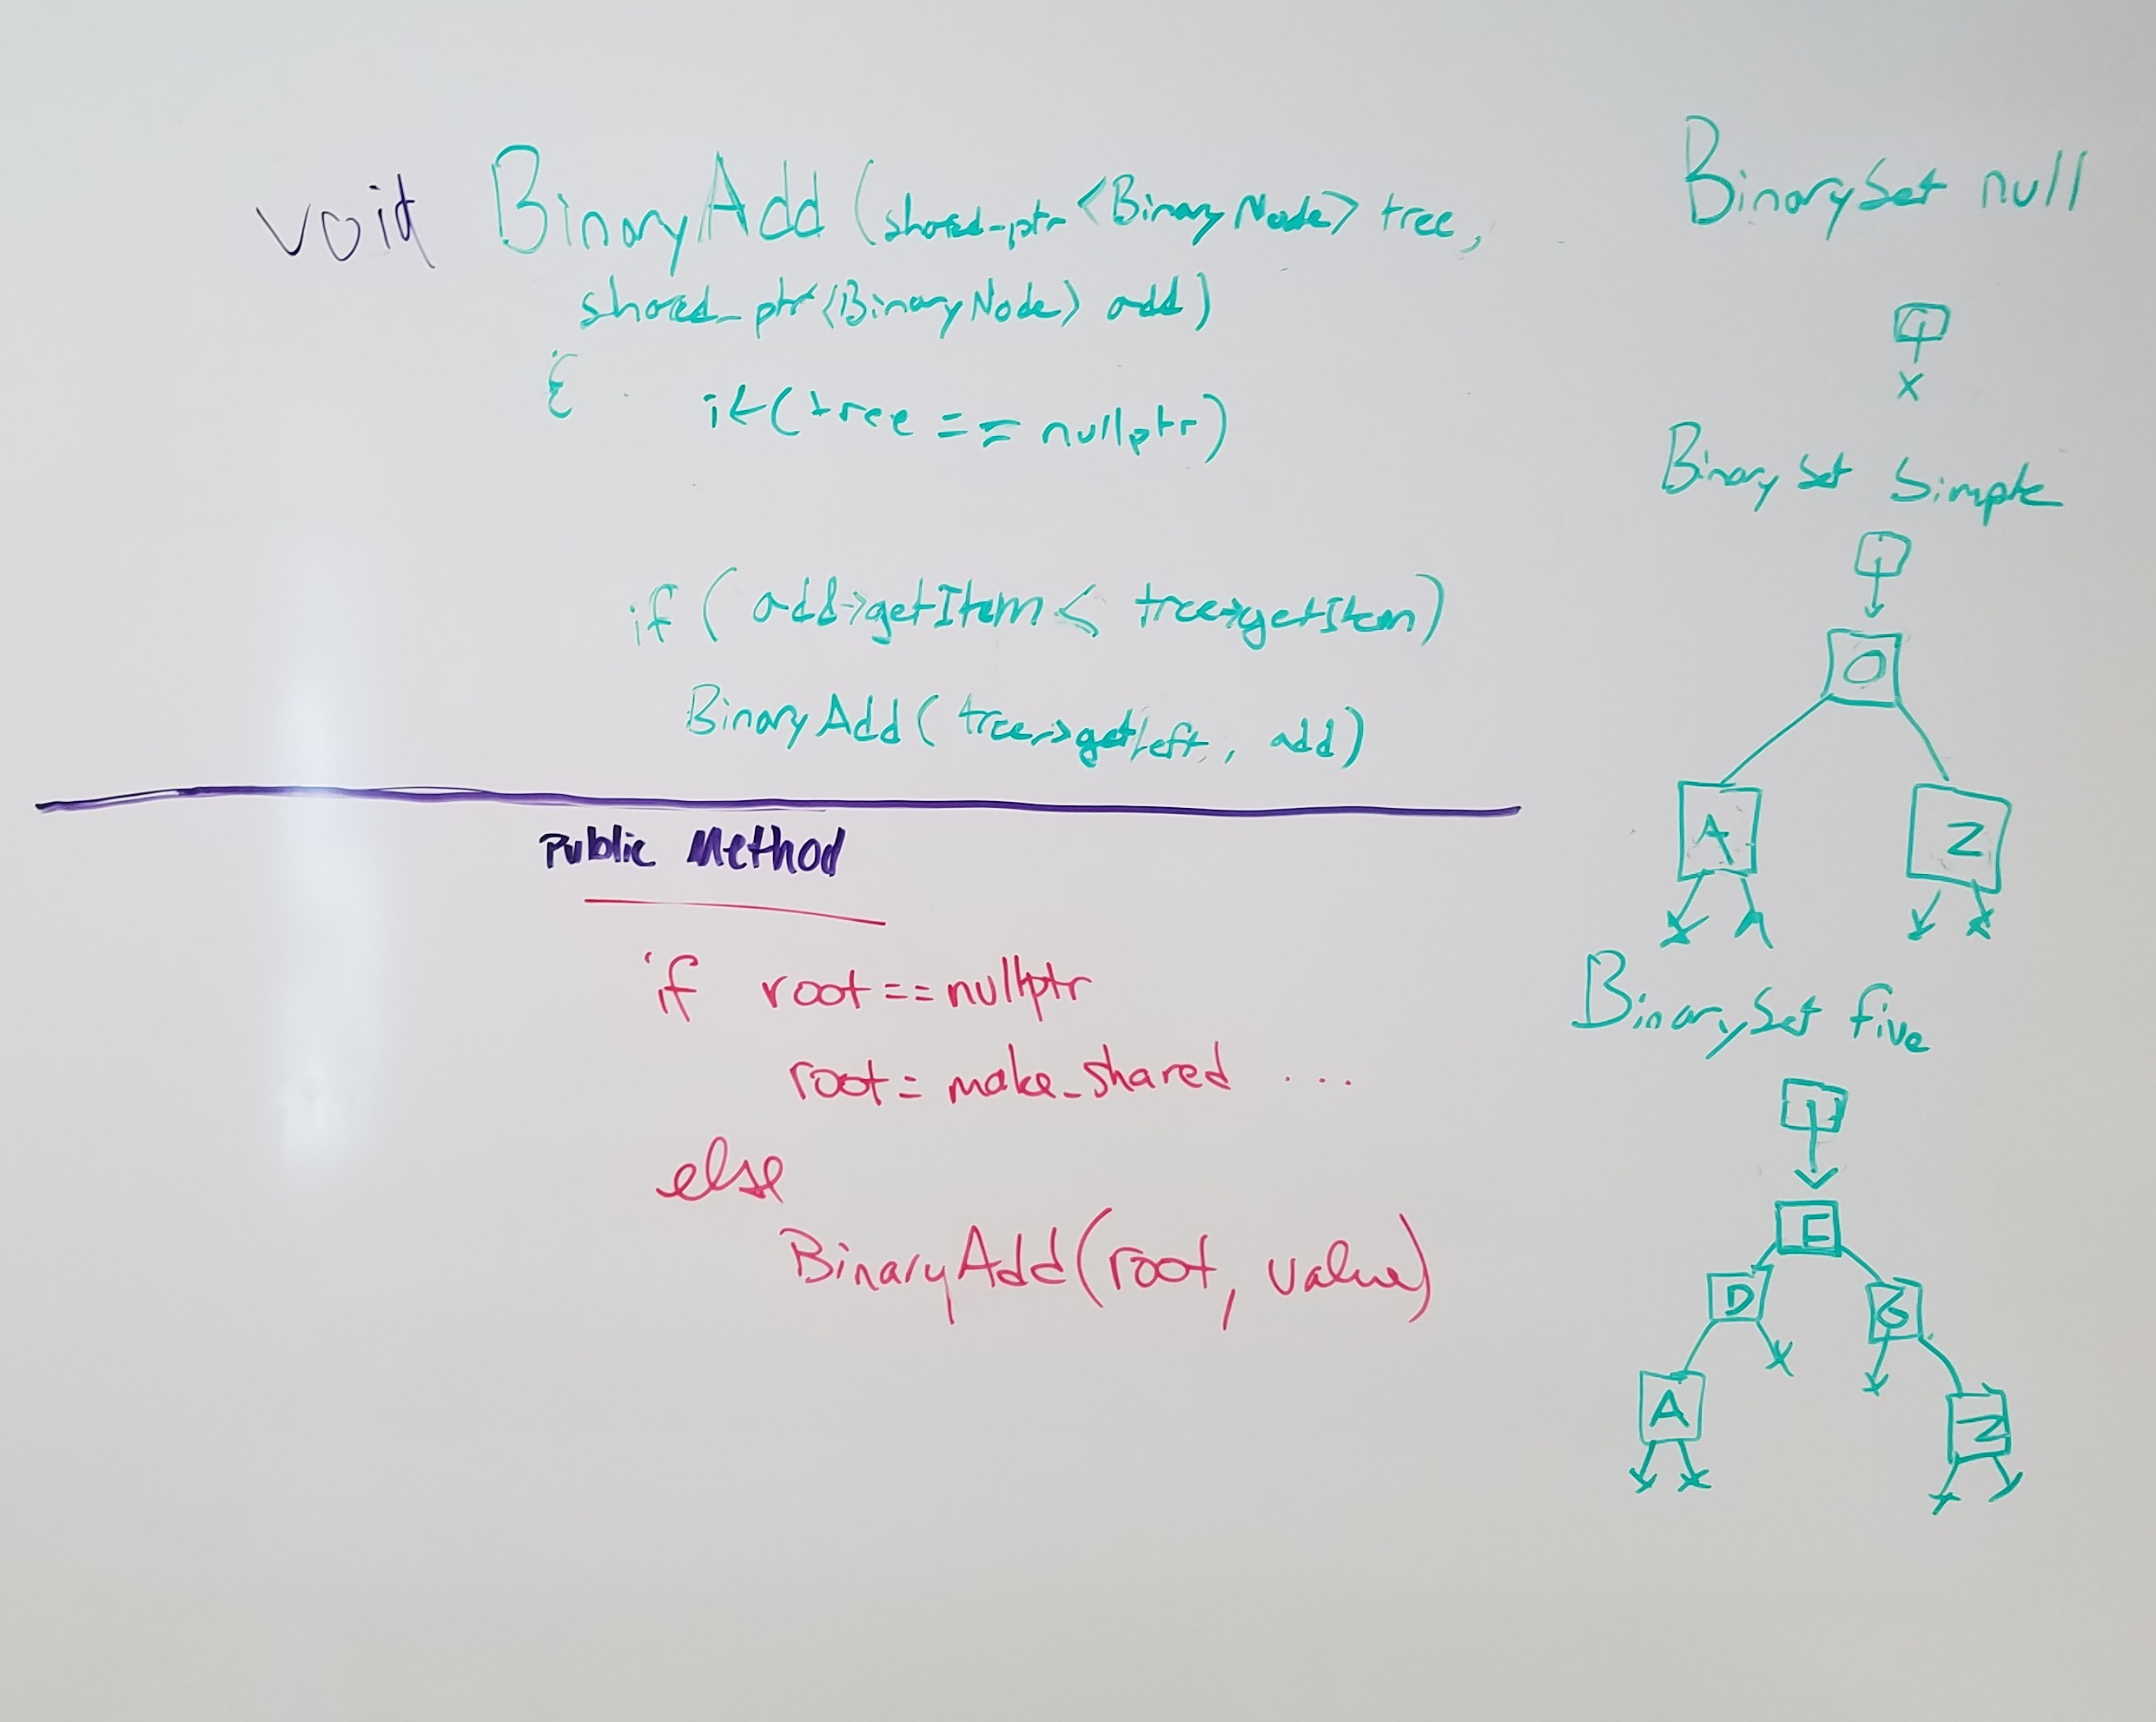 void BinaryAdd (shared_ptr <BinaryNode> tree,
shared_ptr <BinaryNode> add)
{ if (tree == nullptr)
if ( add->getItem < tree->getItem)
BinaryAdd ( tree->getLeft, add)
Public Method
if root == nullptr
root = make_shared ...
else
BinaryAdd (root, value)
BinarySet null
X
BinarySet Simple
O
A Z
BinarySet five
E
D G
A Z